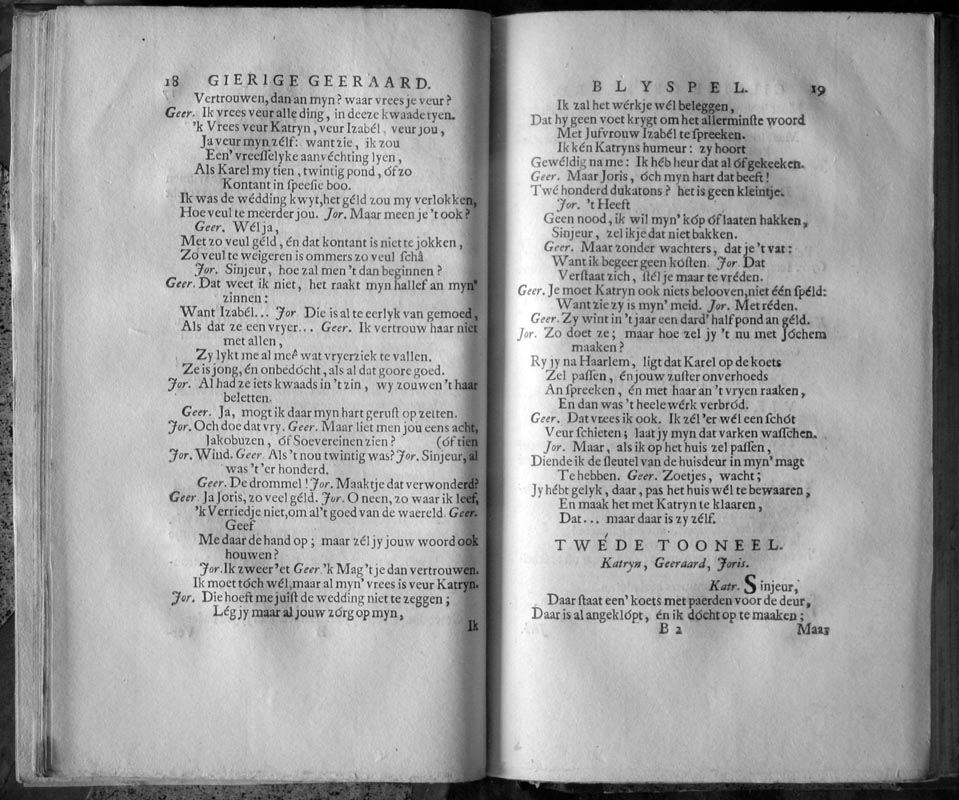 18 GIERIGE GEERAARD.
Vertrouwen, dan an myn? waar vrees je veur?
Geer. Ik vrees veur alle ding, in deeze kwaade tyen.
'k Vrees veur Katryn, veur Izabél, veur jou,
Ja veur myn zélf: want zie, ik zou
Een' vreeſſelyke aanvéchting lyen,
Als Karel my tien, twintig pond, óf zo
Kontant in ſpeeſie boo.
Ik was de wédding kwyt, het géld zou my verlokken,
Hoe veul te meerder jou. Jor. Maar meen je 't ook?
Geer. Wél ja,
Met zo veul géld, én dat kontant is niet te jokken,
Zo veul te weigeren is ommers zo veul ſchâ
Jor. Sinjeur, hoe zal men 't dan beginnen?
Geer. Dat weet ik niet, het raakt myn hallef an myn'
zinnen:
Want Izabél... Jor Die is al te eerlyk van gemoed,
Als dat ze een vryer... Geer. Ik vertrouw haar niet
met allen,
Zy lykt me al meê wat vryerziek te vallen.
Ze is jong, én onbedócht, als al dat goore goed.
Jor. Al had ze iets kwaads in 't zin, wy zouwen 't haar
beletten.
Geer. Ja, mogt ik daar myn hart geruſt op zetten.
Jor. Och doe dat vry. Geer. Maar liet men jou eens acht,
Jakobuzen, óf Soevereinen zien? (óf tien
Jor. Wind. Geer. Als 't nou twintig was? Jor. Sinjeur, al
was 't 'er honderd.
Geer. De drommel! Jor. Maakt je dat verwonderd?
Geer Ja Joris, zo veel géld. Jor. O neen, zo waar ik leef,
'k Verried je niet, om al 't goed van de waereld. Geer.
Geef
Me daar de hand op; maar zél jy jouw woord ook
houwen?
Jor. Ik zweer 'et Geer 'k Mag 't je dan vertrouwen.
Ik moet tóch wél, maar al myn' vrees is veur Katryn.
Jor. Die hoeft me juiſt de wedding niet te zeggen;
Lég jy maar al jouw zórg op myn,
Ik
BLYSPEL. 19
Ik zal het wérkje wél beleggen,
Dat hy geen voet krygt om het allerminſte woord
Met Jufvrouw Izabél te ſpreeken.
Ik kén Katryns humeur: zy hoort
Gewéldig na me: Ik héb heur dat al óf gekeeken.
Geer. Maar Joris, óch myn hart dat beeft!
Twé honderd dukatons? het is geen kleintje.
Jor. 't Heeft
Geen nood, ik wil myn' kóp óf laaten hakken,
Sinjeur, zel ik je dat niet bakken.
Geer. Maar zonder wachters, dat je 't vat:
Want ik begeer geen kóſten. Jor. Dat
Verſtaat zich, ſtél je maar te vréden.
Geer. Je moet Katryn ook niets belooven, niet één ſpéld:
Want zie zy is myn' meid. Jor. Met réden.
Geer. Zy wint in 't jaar een dard' half pond an géld.
Jor. Zo doet ze; maar hoe zel jy 't nu met Jóchem
maaken?
Ry jy na Haarlem, ligt dat Karel op de koets
Zel paſſen, én jouw zuſter onverhoeds
An ſpreeken, én met haar an 't vryen raaken,
En dan was 't heele wérk verbród.
Geer. Dat vrees ik ook. Ik zél 'er wél een ſchót
Veur ſchieten; laat jy myn dat varken waſſchen.
Jor. Maar, als ik op het huis zel paſſen,
Diende ik de ſleutel van de huisdeur in myn' magt
Te hebben. Geer. Zoetjes, wacht;
Jy hébt gelyk, daar, pas het huis wél te bewaaren,
En maak het met Katryn te klaaren,
Dat... maar daar is zy zélf.
TWÉDE TOONEEL.
Katryn, Geeraard, Joris.
Katr. Sinjeur,
Daar ſtaat een' koets met paerden voor de deur,
Daar is al angeklópt, én ik dócht op te maaken;
B 2 Maar